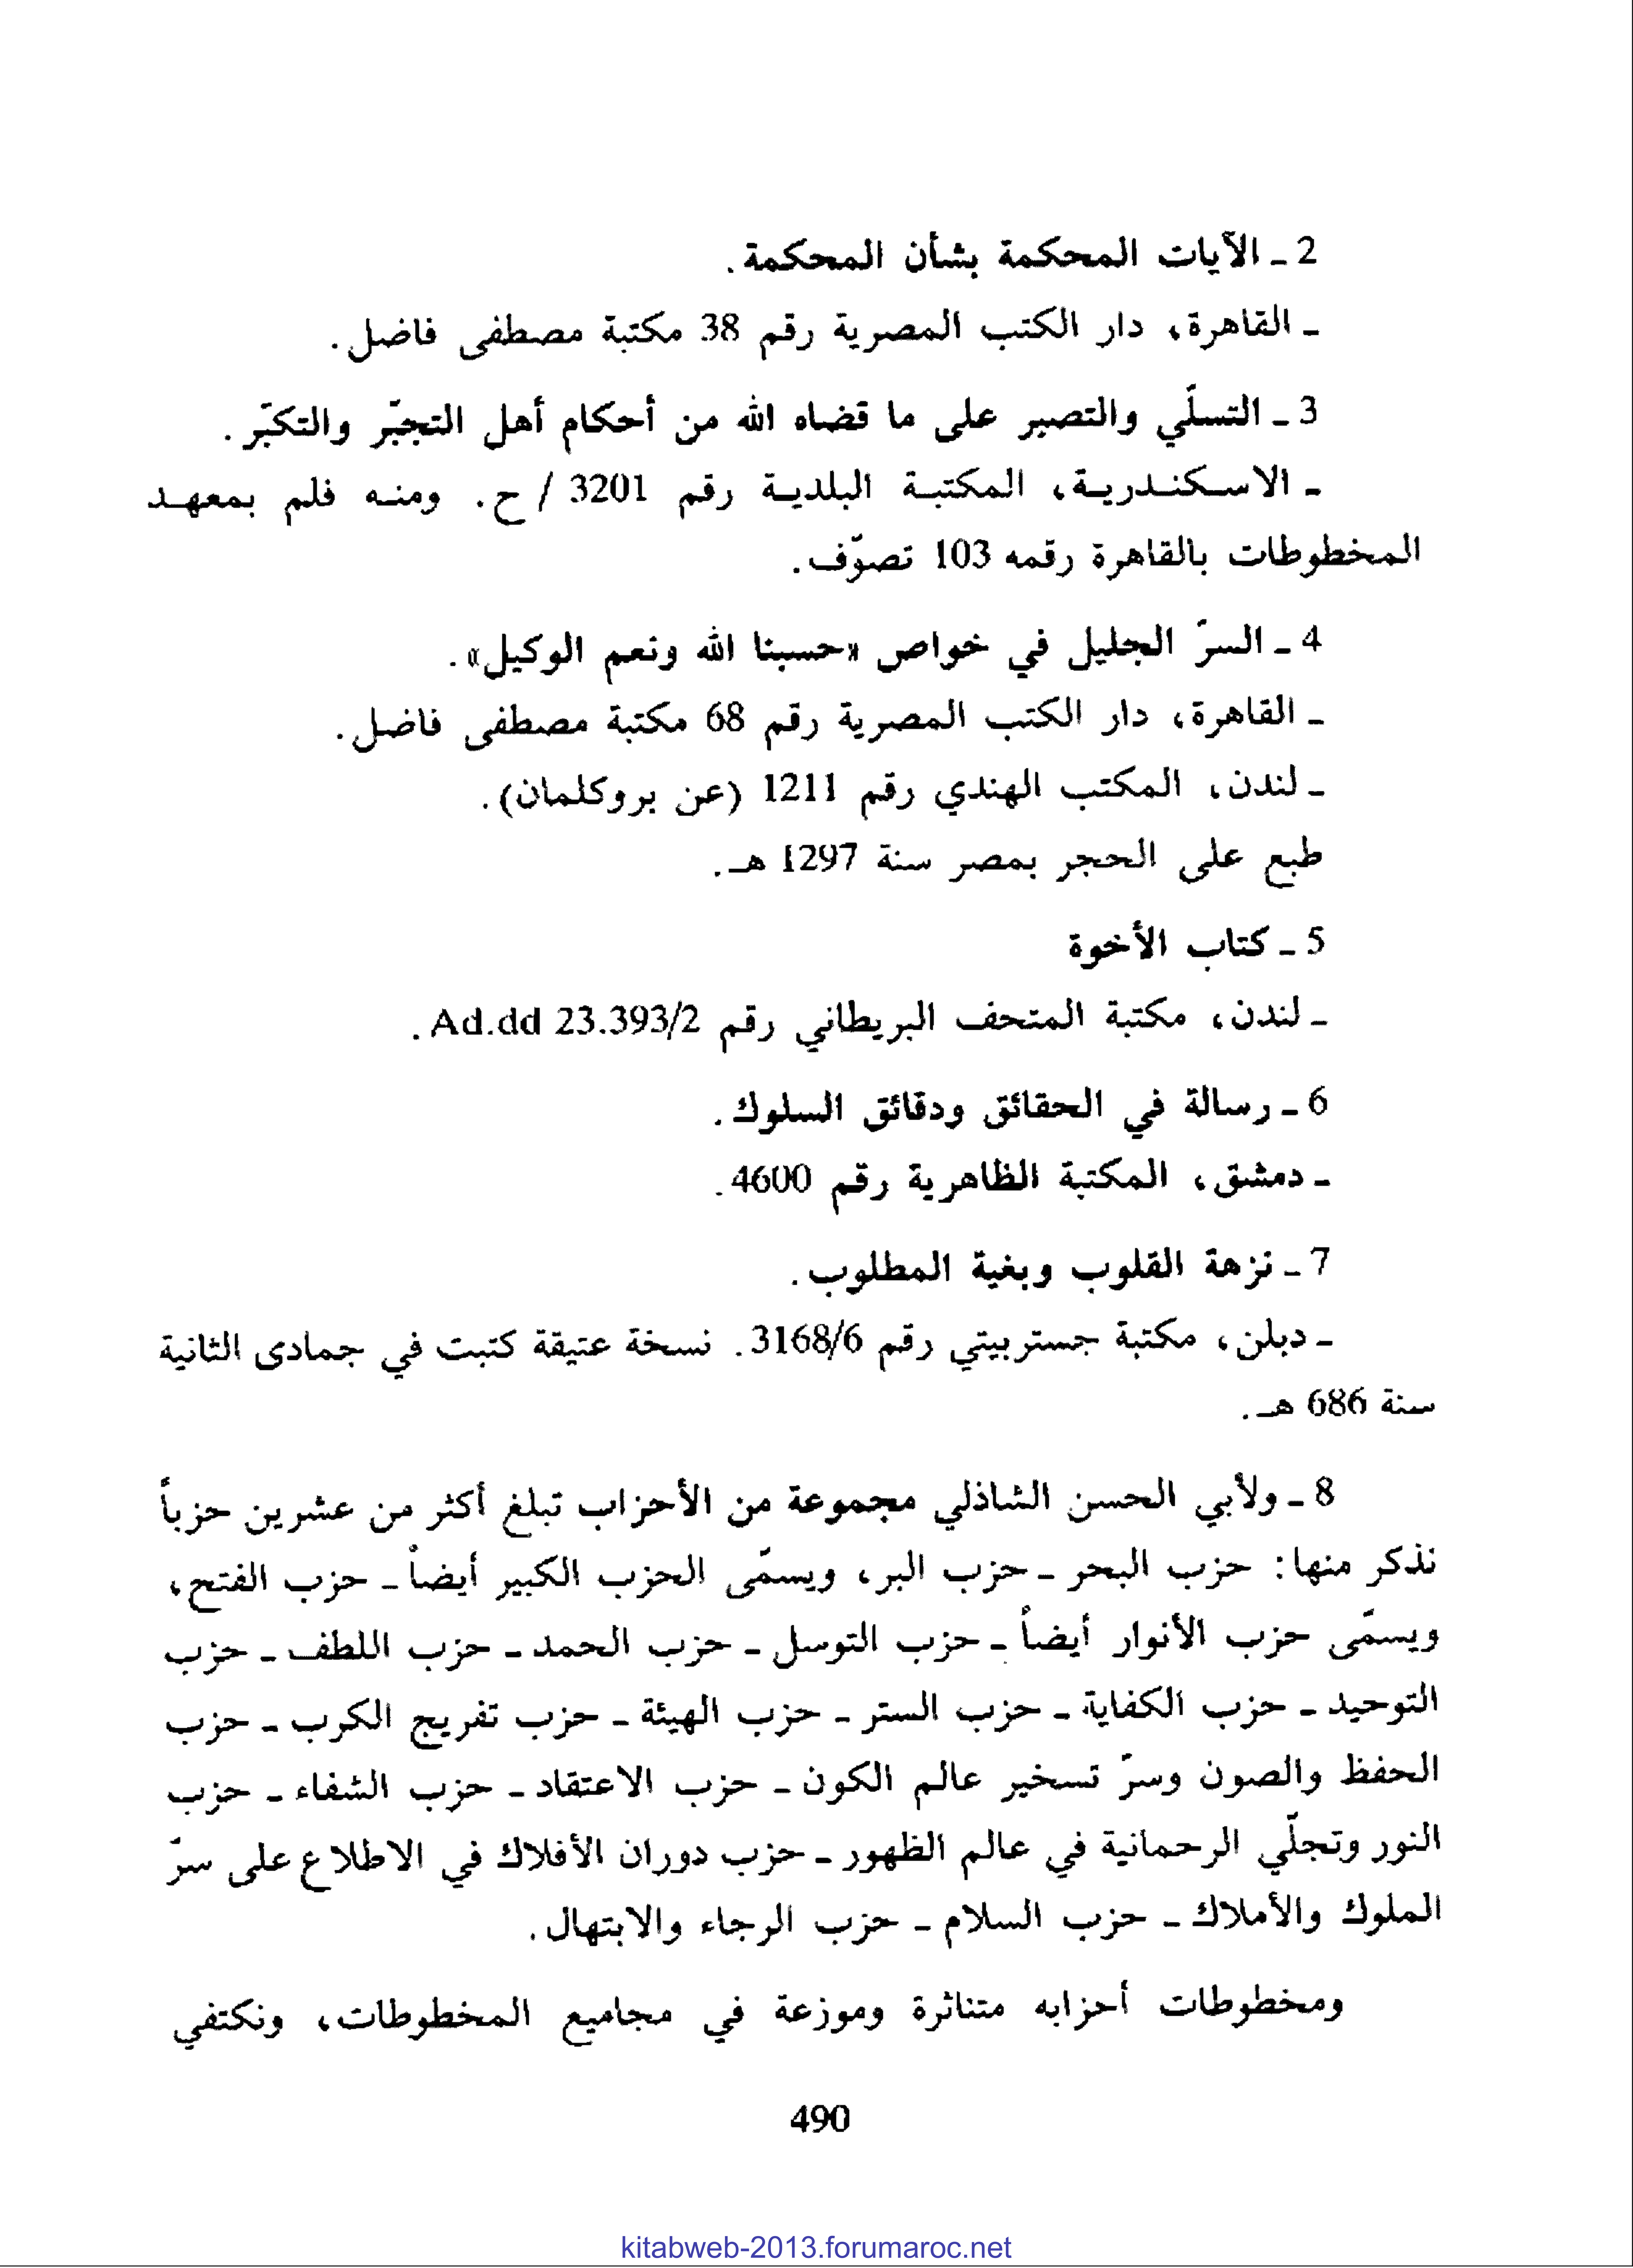 2 ـ الآيات المحكمة بشأن المحكمة.
ـ القاهرة، دار الكتب المصرية رقم 38 مكتبة مصطفى فاضل.
3 ـ التسلّي والتصبر على ما قضاه الله من أحكام أهل التجبّر والتكبّر.
ـ الاسكندرية، المكتبة البلدية رقم 3201 / ح. ومنه فلم بمعهد
المخطوطات بالقاهرة رقمه 103 تصوّف.
4 ـ السرّ الجليل في خواص «حسبنا الله ونعم الوكيل».
ـ القاهرة، دار الكتب المصرية رقم 68 مكتبة مصطفى فاضل.
ـ لندن، المكتب الهندي رقم 1211 (عن بروكلمان).
طبع على الحجر بمصر سنة 1297 هـ.
5 ـ كتاب الأخوة
ـ لندن، مكتبة المتحف البريطاني رقم Ad.dd 23.393/2.
6 ـ رسالة في الحقائق ودقائق السلوك.
ـ دمشق، المكتبة الظاهرية رقم 4600.
7 ـ نزهة القلوب وبغية المطلوب.
ـ دبلن، مكتبة جستربيتي رقم 3168/6. نسخة عتيقة كتبت في جمادى الثانية
سنة 686 هـ.
8 ـ ولأبي الحسن الشاذلي مجموعة من الأحزاب تبلغ أكثر من عشرين حزباً
نذكر منها: حزب البحر ـ حزب البر، ويسمّى الحزب الكبير أيضاً ـ حزب الفتح،
ويسمّى حزب الأنوار أيضاً ـ حزب التوسل ـ حزب الحمد ـ حزب اللطف ـ حزب
التوحيد ـ حزب الكفاية ـ حزب الستر ـ حزب الهيئة ـ حزب تفريج الكرب ـ حزب
الحفظ والصون وسرّ تسخير عالم الكون ـ حزب الاعتقاد ـ حزب الشفاء ـ حزب
النور وتجلّي الرحمانية في عالم الظهور ـ حزب دوران الأفلاك في الاطلاع على سرّ
الملوك والأملاك ـ حزب السلام ـ حزب الرجاء والابتهال.
ومخطوطات أحزابه متناثرة وموزعة في مجاميع المخطوطات، ونكتفي
490
kitabweb-2013.forumaroc.net